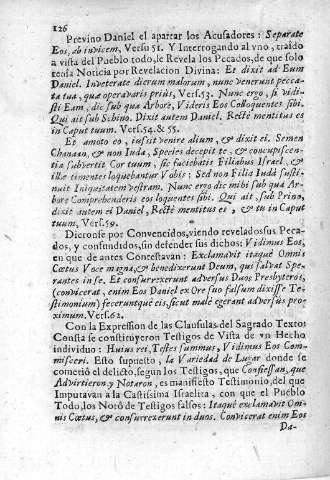 126
Previno Daniel el apartar los Acusadores: Separate
Eos, ab invicem, Versu 51. Y Interrogando al vno, traído
a vista del Pueblo todo, le Revela los Pecados, de que solo
tenia Noticia por Revelacion Divina: Et dixit ad Eum
Daniel. Inveterate dierum malorum, nunc venerunt pecca-
ta tua, quæ operavaris priùs, Vers.53. Nunc ergo, si vidi-
sti Eam, dic sub qua Arbore, Videris Eos Colloquentes sibi.
Qui ait sub Schino. Dixit autem Daniel. Rectè mentitus es
in Caput tuum. Vers.54. & 55.
Et amoto eo, iussit venire alium, & dixit ei. Semen
Chanaan, & non Iuda, Species decepit te, & concupiscen-
tia subvertit Cor tuum, sic faciebatis Filiabus Israel, &
illæ timentes loquebantur Vobis: Sed non Filia Iudâ susti-
nuit Iniquitatem vestram. Nunc ergo dic mihi sub quá Ar-
bore Comprehenderis eos loquentes sibi. Qui ait, sub Prino,
dixit autem ei Daniel, Rectè mentitus ei, & tu in Caput
tuum, Vers.59.
Dieronse por Convencidos, viendo revelados sus Peca-
dos, y confundidos, sin defender sus dichos: Vidimus Eos,
en que de antes Constestavan: Exclamavit itaquè Omnis
Cœtus Voce magna, & benedixerunt Deum, qui salvat Spe-
rantes in se. Et consurrexerunt adversus Duos Presbyteros,
(convicerat, enim Eos Daniel ex Ore suo falsum dixisse Te-
stimonium) feceruntquè eis, sicut malè egerant adversus pro-
ximum. Vers.62.
Con la Expression de las Clausulas del Sagrado Texto,
Consta se constituyeron Testigos de Vista de vn Hecho
individuo: Huius rei, Testes summus, Vidimus Eos Com-
misceri. Esto supuesto, la Variedad de Lugar donde se
cometiò el delicto, segun los Testigos, que Confiessan, que
Advirtieron, y Notaron, es manifiesto Testimonio, del que
Imputavan à la Castissima Israelita, con que el Pueblo
Todo, los Notó de Testigos falsos: Itaquè exclamavit Om-
nis Cœtus, & consurrexerunt in duos. Convicerat enim Eos
Da-